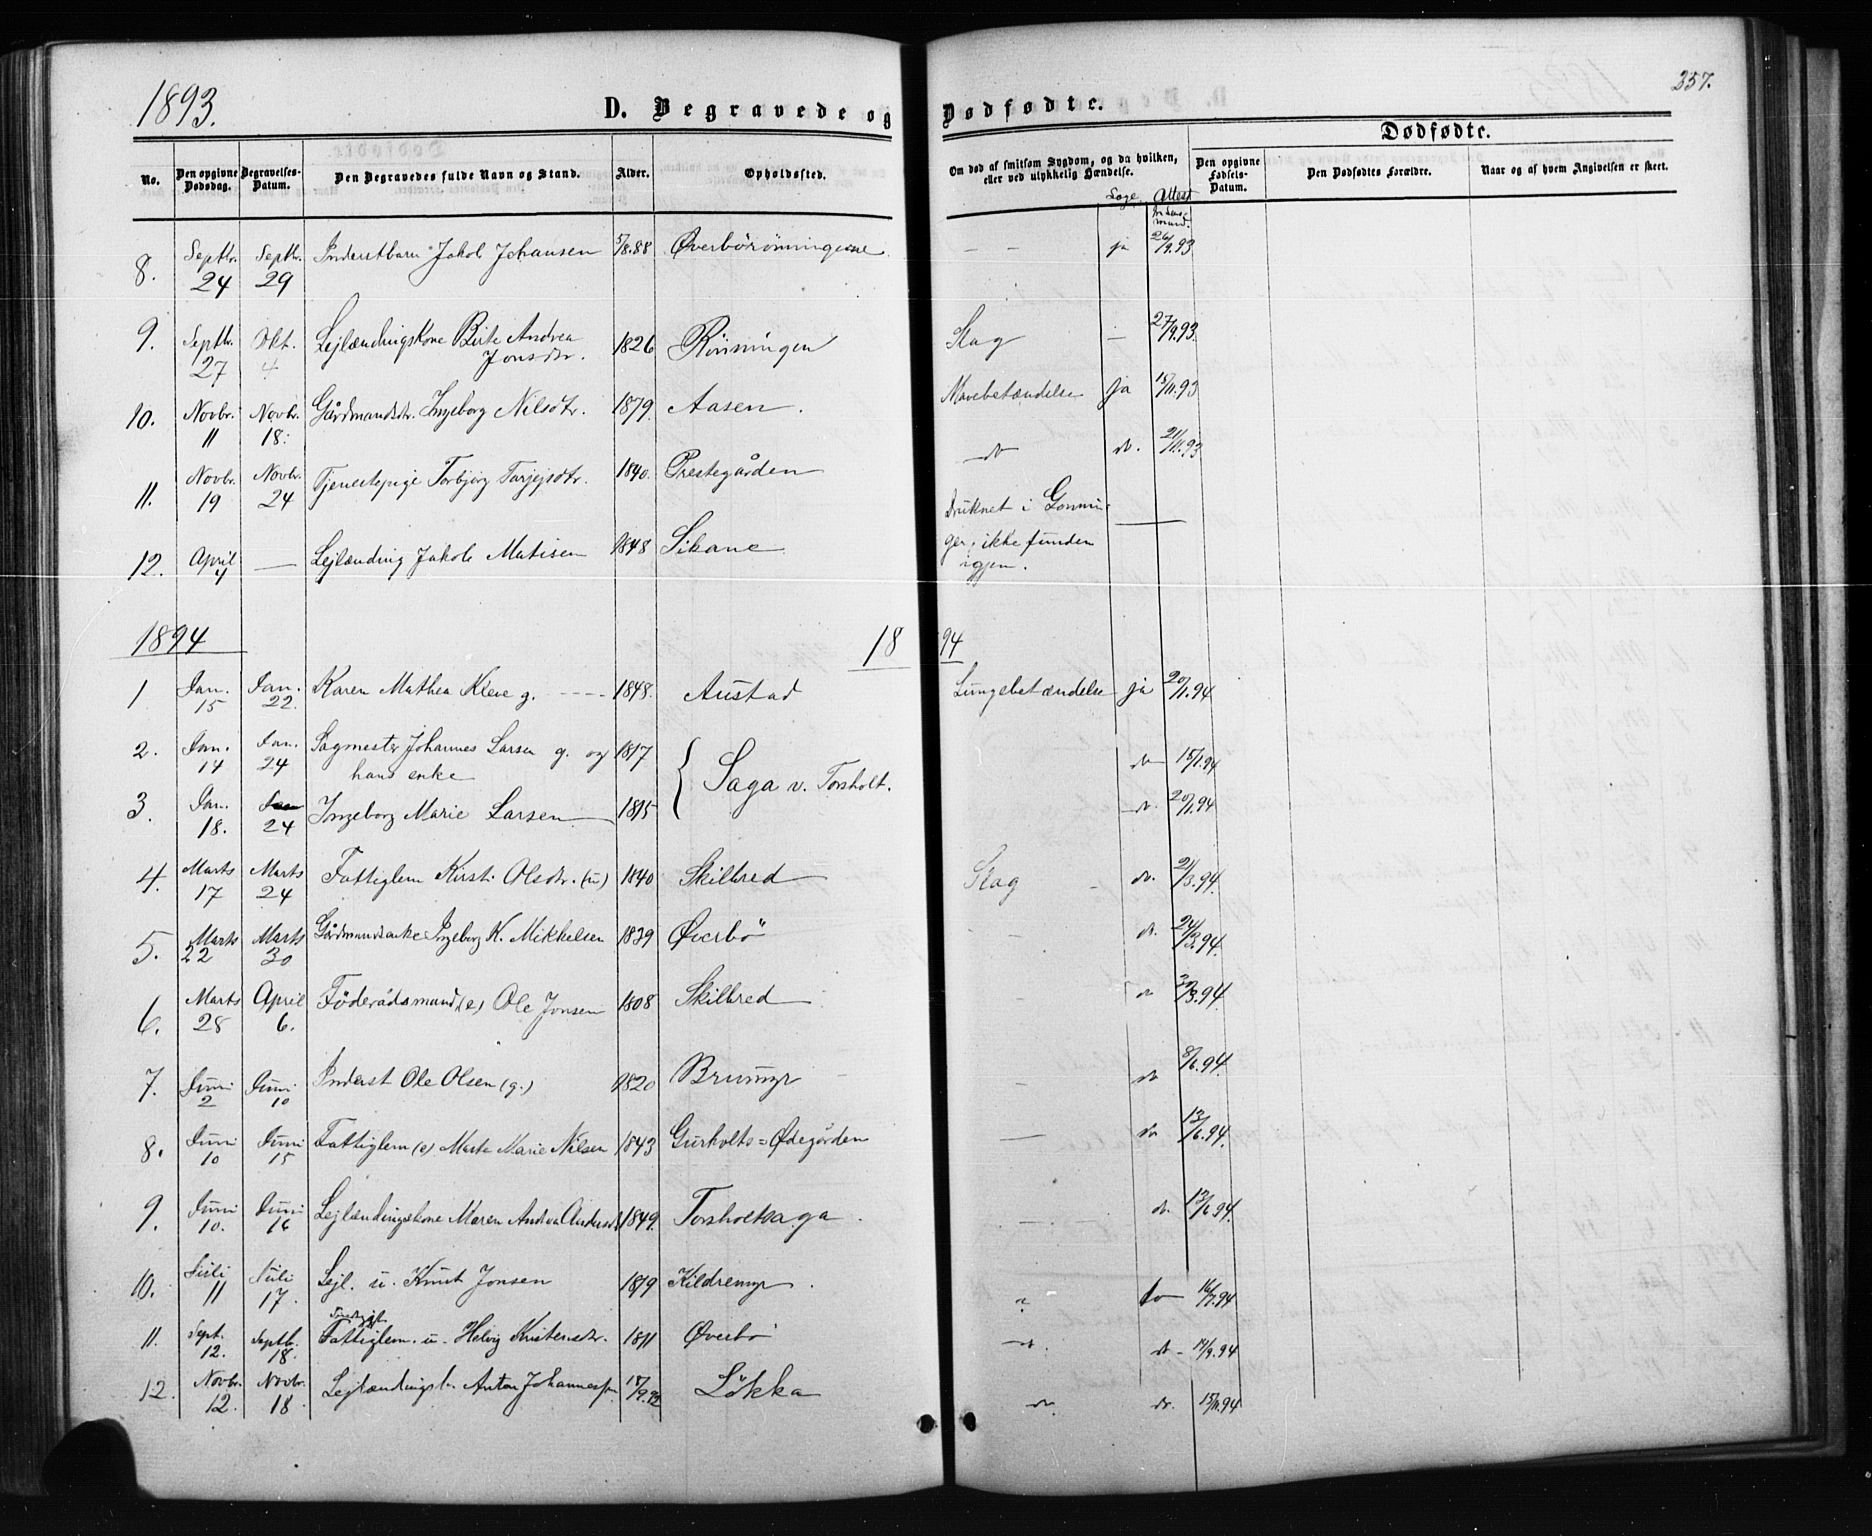 1893.
D. Begravede og Dødfødte.
257.
No.
Den opgivne Dødsdag.
Begravelses-Datum.
Den Begravedes fulde Navn og Stand.
Alder.
Opholdssted.
Om død af smitsom Sygdom, og da hvilken, eller ved ulykkelig Hændelse.
Dødfødte.
Den opgivne Fødsels-Datum.
Den Dødfødtes Forældre.
Naar og af hvem Angivelsen er skeet.
Læge Attest
8. Septbr. 24 Septbr. 29 Inderstbarn Jakob Johansen 5/8.88 Øverbörönningene — — ja 26/9.93
9. Septbr. 27 Okt. 4 Lejlændingskone Birte Andrea Jonsdtr. 1826 Rönningen Slag — 27/9.93.
10. Novbr. 11 Novbr. 18. Gårdmandsdtr. Ingeborg Nilsdtr. 1879. Aasen. Mavebetændelse ja 15/11.93
11. Novbr. 19 Novbr. 24 Tjenestepige Torbjörg Tarjejsdtr. 1840. Prestegården do do. 21/11.93
12. April 4 — Lejlænding Jakob Matisen 1848 Likane Druknet i Gonnin-
ger, ikke funden
igjen.
1894
1894
1 Jan. 15 Jan. 22. Karen Mathea Kleve g. 1848. Austad Lungebetændelse ja 20/1.94
2. Jan. 14 Jan. 24 Sagmester Johannes Larsen g. og 1817
hans enke
Saga v. Torsholt. do 15/1.94
3. Jan. 18. 24 Ingeborg Marie Larsen 1815 do. 20/1.94
4. Marts 17 Marts 24 Fattiglem Kirsti Olsdtr. (u) 1840 Skilbred Slag do. 21/3.94.
5. Marts 22 Marts 30 Gårdmandsenke Ingeborg K. Mikkelsen 1839 Øverbö — do. 24/3.94.
6. Marts 28 April 6. Föderådsmand (e) Ole Jonsen 1808 Skilbred — do /3.94.
7. Juni 2 Juni 10 Inderst Ole Olsen (g.) 1820 Brumyr — do 8/6.94.
8. Juni 10 Juni 15 Fattiglem (e) Marte Marie Nilsen 1843 Gurholts=Ødegården — do 13/6.94.
9. Juni 10. Juni 16 Lejlændingskone Maren Andrea Andersdtr 1849. Torsholtsaga. — do. 13/6.94.
10. Juli 11 Juli 17. Lejl. u. Knut Jonsen 1819 Kildremyr. do 16/7.94
11. Sept. 12. Septb. 18. Fattiglem. u. Helvig Kristensdtr. 1811 Øverbö do. do 14/9.94
12. Novbr. 12. Novbr. 18. Lejlændingsb. Anton Johannessen 18/9.92 Lökka do. do. 15/11.94